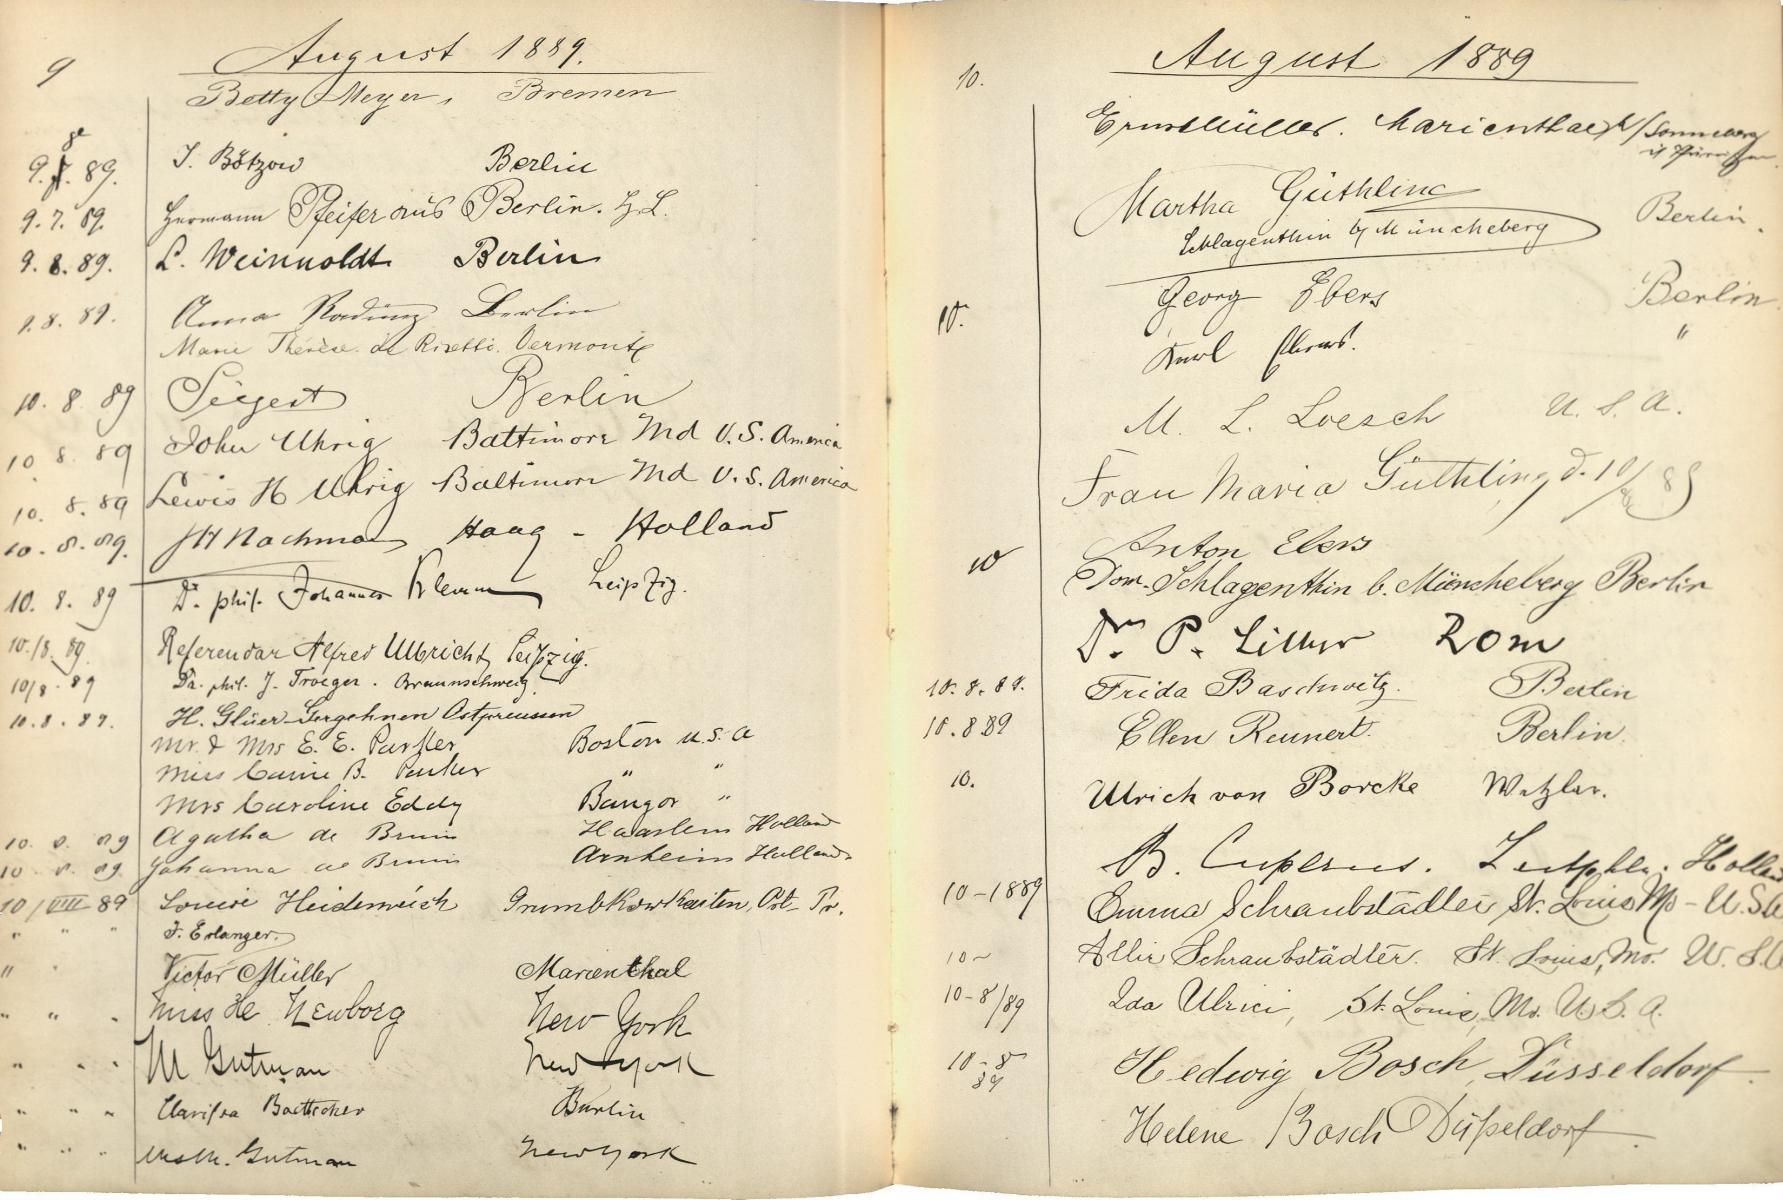 9 August 1889.
Betty Meyer, Bremen
9. 8. 89. J. Bötzow Berlin
9. 7. 89. Hermann Pfeifer aus Berlin.
9. 8. 89. L. Weinnoldt Berlin
9. 8. 89. Anna Berlin
Marie Thérèse de
10. 8 89 Siegert Berlin
10 8. 89 John Uhrig Baltimore Md U.S. America
10. 8. 89 Lewis H Uhrig Baltimore Md U.S. America
10. 8. 89. Haag - Holland
10. 8. 89 Dr. phil. Johannes Klemm Leipzig.
10./8. 89. Referendar Alfred Ulbricht, Leipzig.
10/8. 89 Dr. phil. J. Troeger. Braunschweig.
10. 8. 89. H. Glüer-Gergehnen Ostpreussen
Mr. & Mrs E. E. Parker Boston U.S.A
Miss Carrie B. Parker " "
Mrs Caroline Eddy Bangor "
10. 8. 89 Agatha de Bruin Haarlem Holland
10 8. 89 Johanna de Bruin Arnheim Holland
10/VIII 89 Louise Heidenreich Grumbkowkeiten, Ost-Pr.
" " " J. Erlanger.
" " Victor Müller Marienthal
" " " Miss He Newborg New York
" " " M Gutman New York
" " " Clarissa Boettcher Berlin
" " " Gutman New York
10. August 1889
Ernst Müller. Marienthal b/Sonneberg
Martha Güthling Berlin.
Schlagenthin by Müncheberg
10. Georg Ebers Berlin.
Karl Ebers. "
M. L. Loesch U.S.A.
Frau Maria Güthling d. 10/8 89
10 Anton Ebers
Dom. Schlagenthin b. Müncheberg Berlin
Dr. P. Rom
10. 8. 89. Frida Baschwitz. Berlin
10. 8 89 Ellen Rennert. Berlin.
10. Ulrich von Borcke Wetzlar.
B. Cuperus. Zutphen. Holland
10-1889 Emma Schraubstädter, St. Louis Mo - U.S.
10- Allie Schraubstädter. St. Louis, Mo. U.S.
10-8/89 Ida Ulrici, St. Louis, Mo. U.S.A.
10-8 89 Hedwig Bosch, Düsseldorf.
Helene Bosch Düsseldorf.